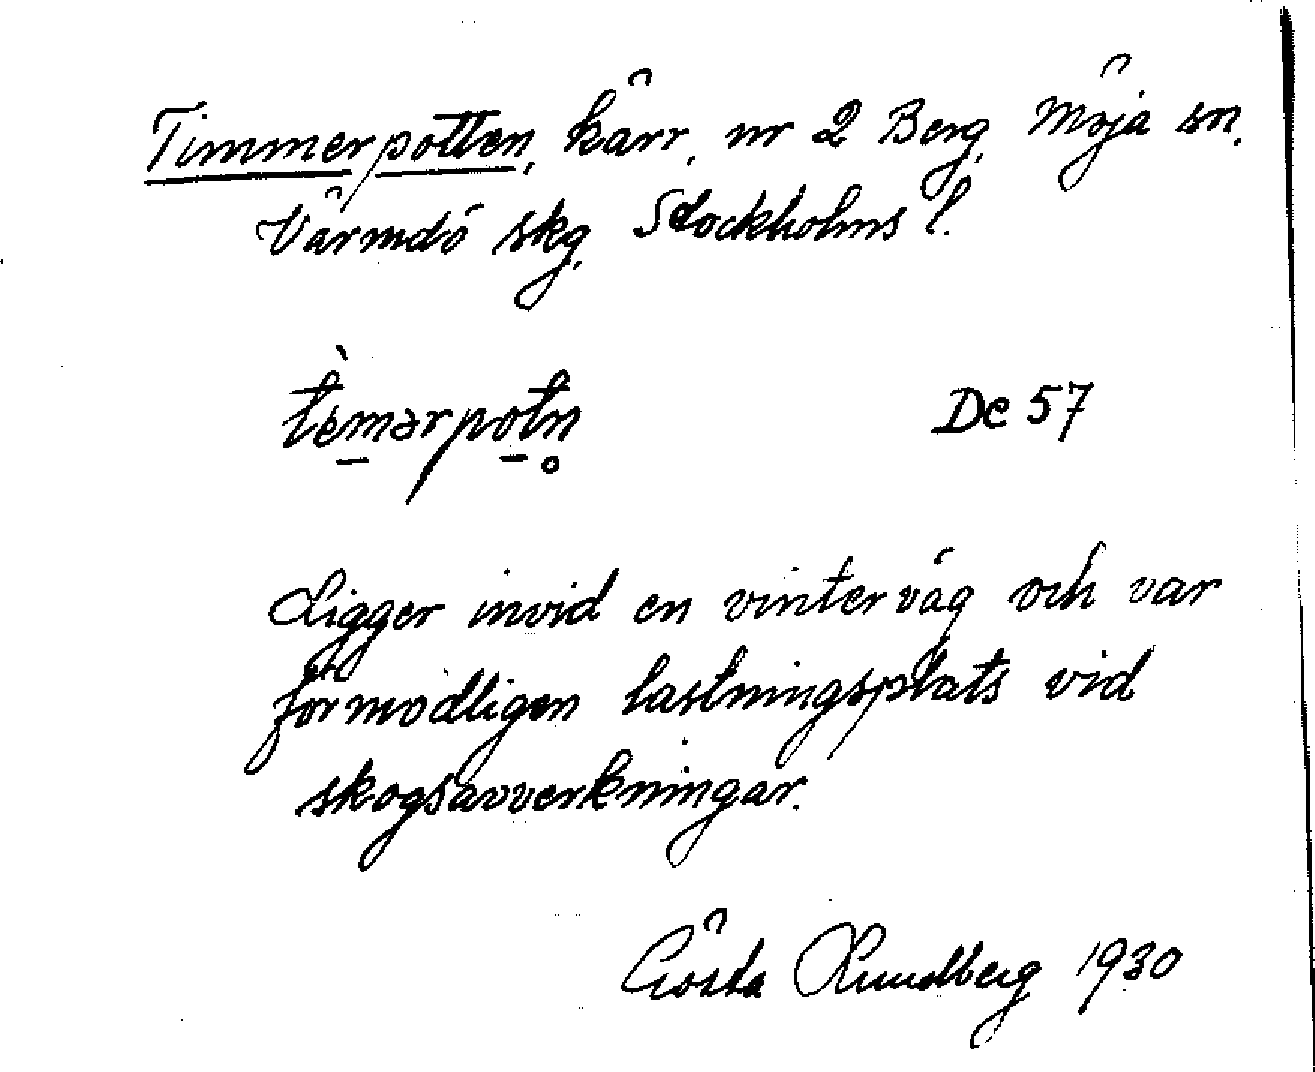 Timmerpotten, kärr, nr 2 Berg, Möja sn.
Värmdö skg, Stockholms l.
tèmərpotn̥
De 57
Ligger invid en vinterväg och var
förmodligen lastningsplats vid
skogsavverkningar.
Gösta Rundberg 1930